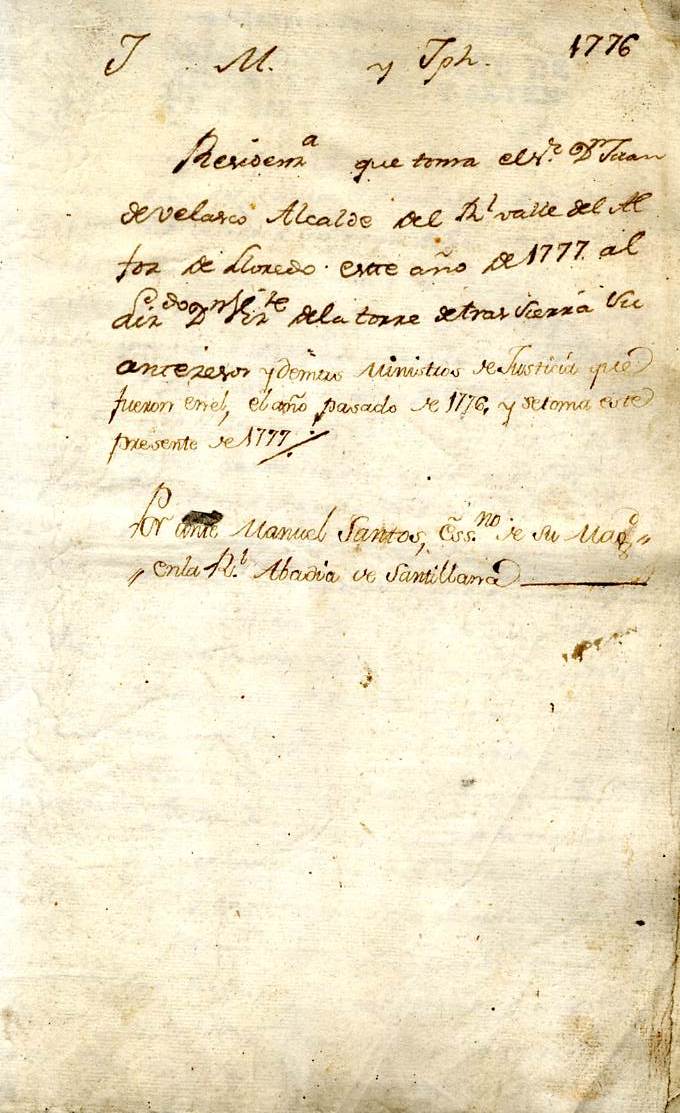 J M. y Jph. 1776
Residenª que toma el Sr. Dn Juan
de Velasco Alcalde del Rl valle del Al
foz de Lloredo este año de 1777 al
Dn de la torre detras sierra Su
antezesor y demas Ministros de Justicia que
fueron en el, el año pasado de 1776, y setoma este
presente de 1777
Por ante Manuel Santos, Essno de su Magd
enla Rl Abadia de Santillana